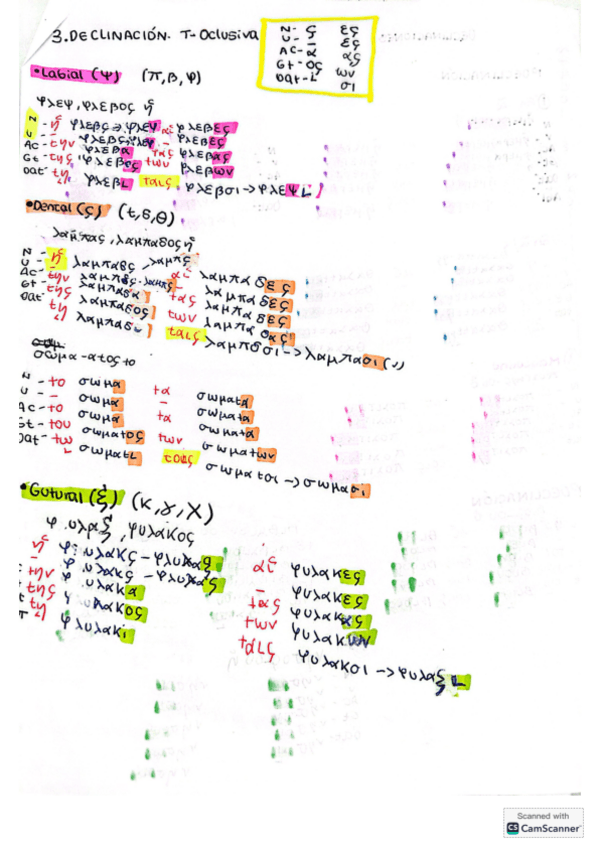 3. DECLINACIÓN. T-Oclusiva
N- ς ες
V- – ες
AC- α ας
Gt- ος ων
Dat- ι σι
• Labial (Ψ) (π, β, φ)
φλεψ, φλεβος ἡ
N - ἡ φλεβς → φλεψ αἱ φλεβες
V - – φλεβς→φλεψ – φλεβες
AC - την φλεβα τας φλεβας
Gt - της φλεβος των φλεβων
Dat - τῃ φλεβι ταις φλεβσι -> φλεψι
• Dental (ς) (τ, δ, θ)
λαμπας, λαμπαδος ἡ
N - ἡ λαμπαδς, λαμπς αἱ λαμπαδες
V - – λαμπαδς - λαμπς – λαμπαδες
AC - την λαμπαδα τας λαμπαδες
Gt - της λαμπαδος των λαμπαδας
Dat τῃ λαμπαδι ταις λαμπδσι -> λαμπασι (ν)
σωμα - ατος το
N - το σωμα τα σωματα
V - – σωμα – σωματα
AC - το σωμα τα σωματα
Gt - του σωματος των σωματων
Dat - τω σωματι τοις σωματσι -> σωμασι
• Gutural (ξ) (κ, γ, χ)
φυλαξ, φυλακος
ἡ φυλακς - φλυακς αἱ φυλακες
– φυλακς - φλυακς – φυλακες
την φυλακα τας φυλακας
της φυλακος των φυλακων
τῃ φλυλακι ταις φυλακσι -> φυλαξι
Scanned with
CS CamScanner